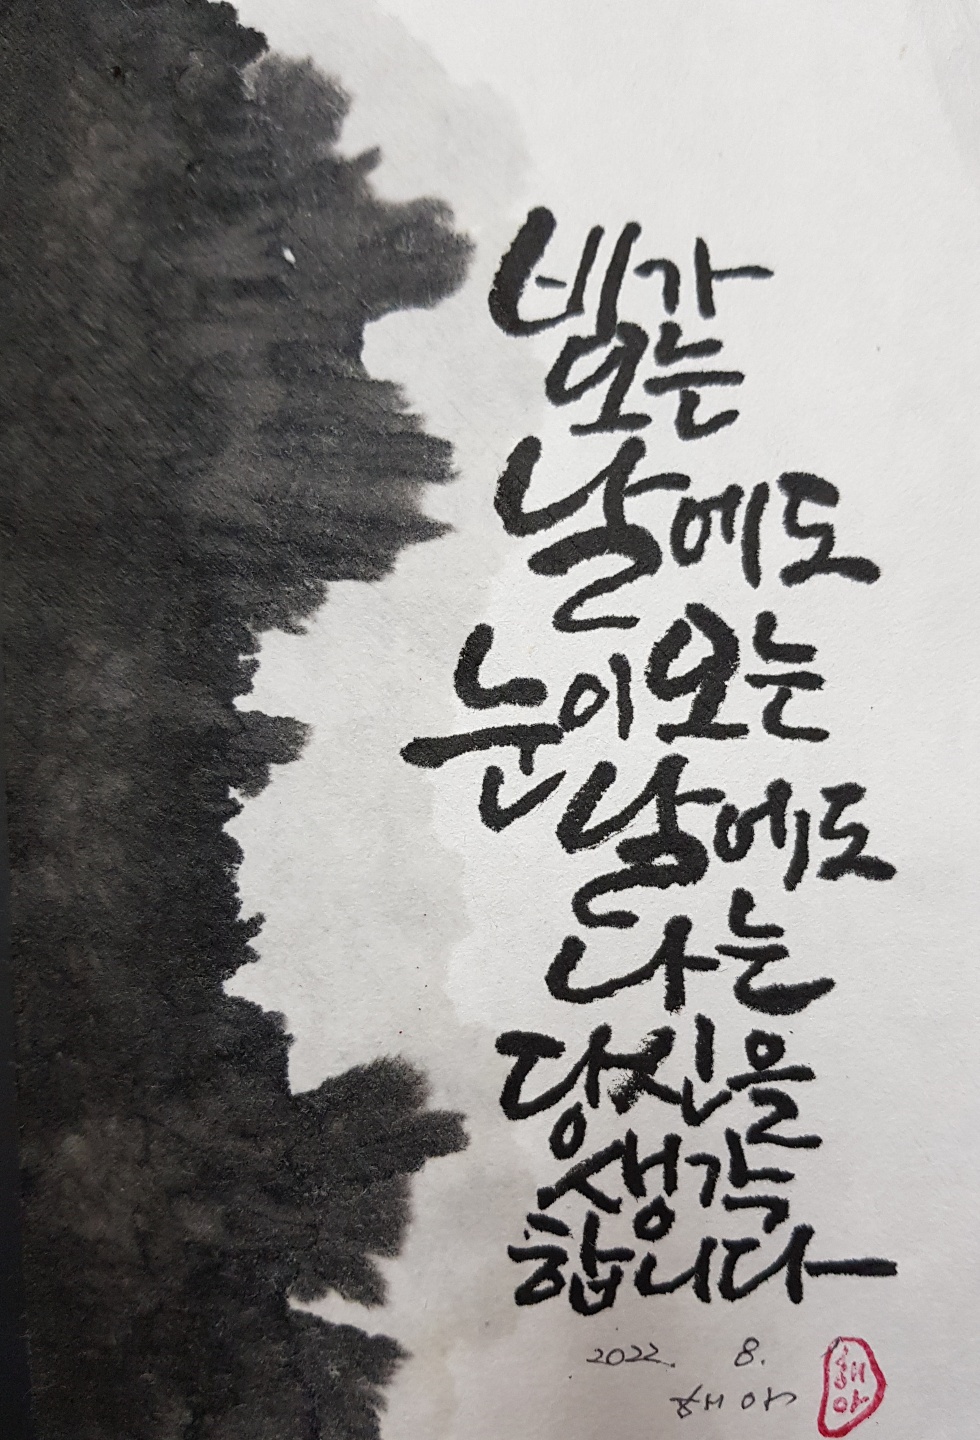 비가
오는
날에도
눈이오는
날에도
나는
당신을
생각
합니다
2022. 8.
해야
해야